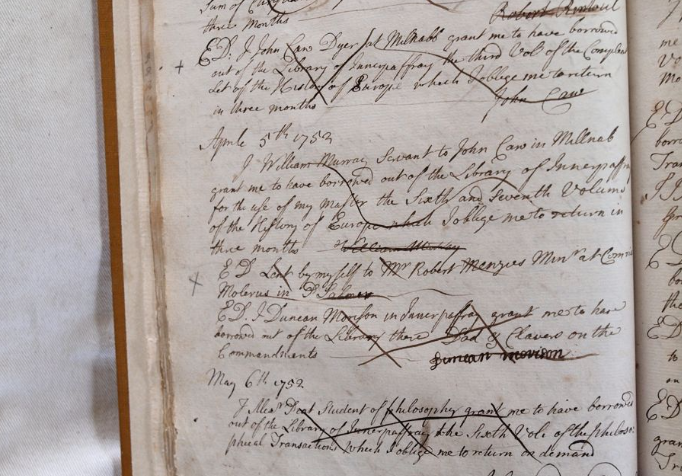 Sum of
Robert
three Months
ED: I John Caw Dyer at Millnabb grant me to have borrowed
out of the Library of Innerpaffray the third Vol: of the Compleat
List of the History of Europe which I oblige me to return
in three months John Caw
Aprile 5th 1752
I William Murray Servant to John Caw in Millnab
grant me to have borrowed out of the Library of Innerpaffray
for the use of my Master the Sixth and Seventh Volums
of the History of Europe which I oblige me to return in
three months William Murray
E D Lent by myself to Mr Robert Menzies Minr at Comrie
Molerus in
ED. I Duncan Morison in Innerpaffray grant me to have
borrowed out of the Library there Dod & Clavers on the
Commandments Duncan Morison
May 6th 1752
I Student of philosophy grant me to have borrowed
out of the Library of Innerpaffray the Sixth Vol: of the philoso
phical Transactions Which I oblige me to return on demand